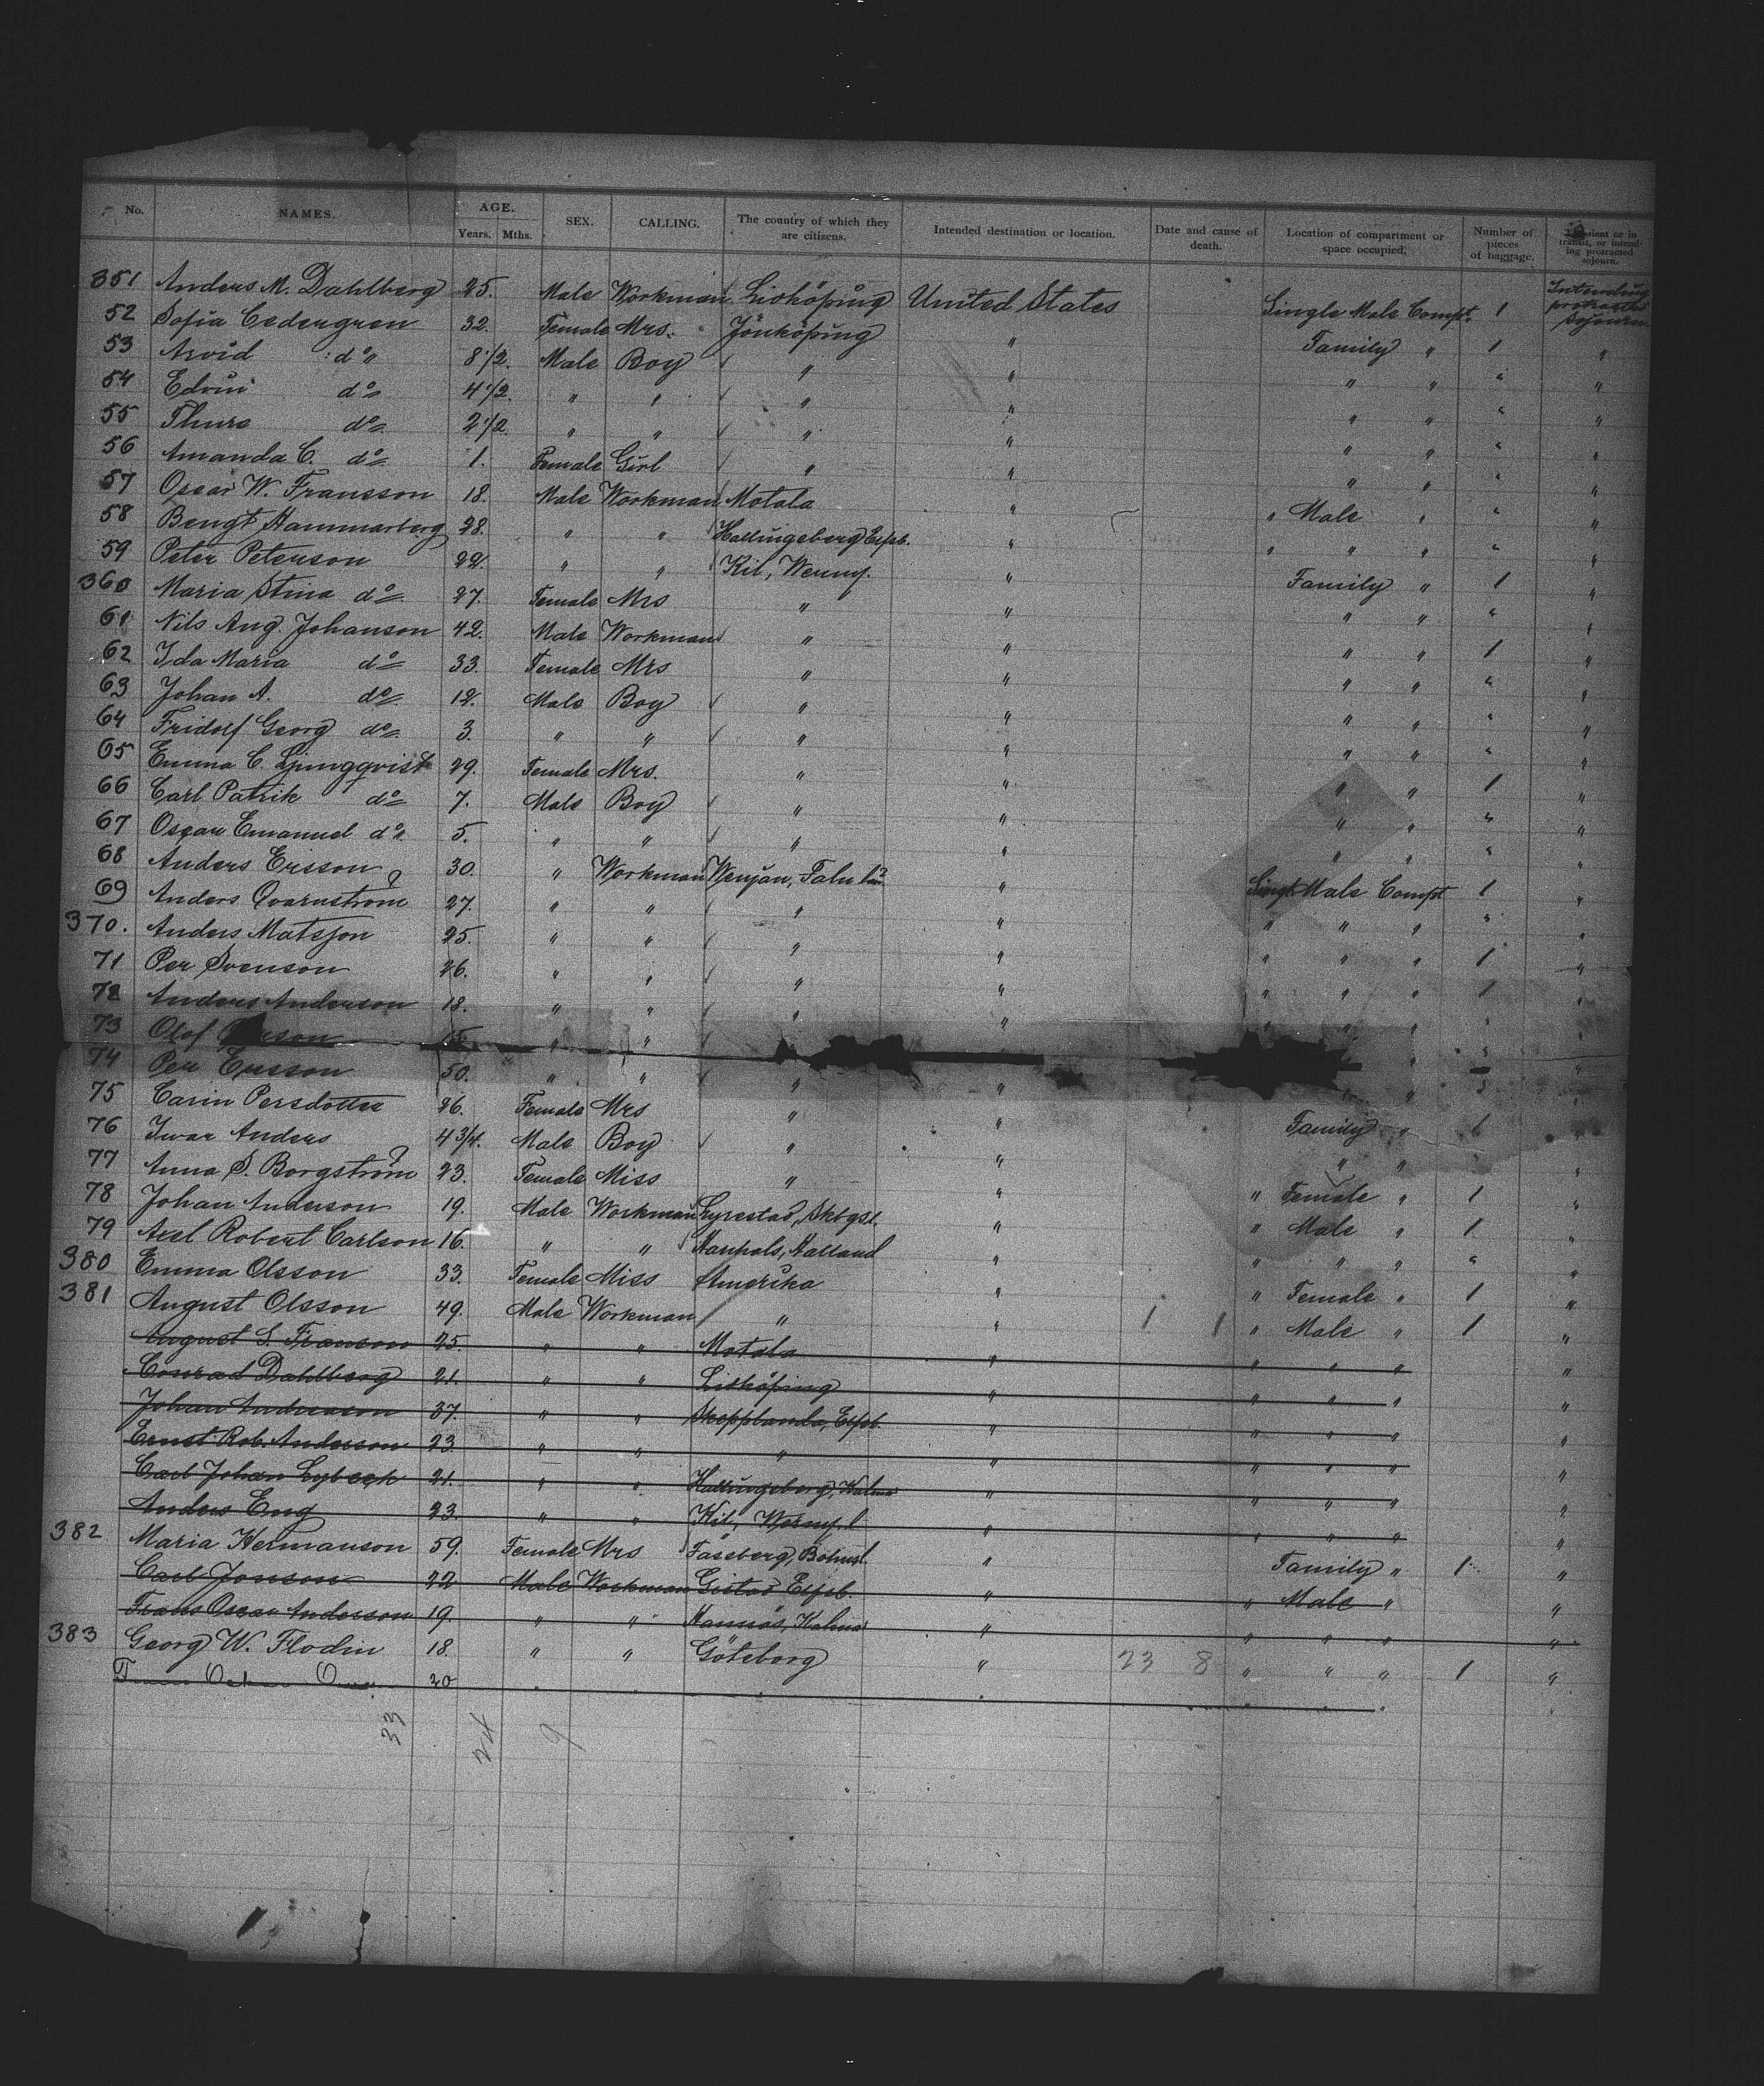 No. NAMES. AGE. Years. Mths. SEX. CALLING. The country of which they are citizens. Intended destination or location. Date and cause of death. Location of compartment or space occupied. Number of pieces of baggage. Transient or in transit, or intending protracted sojourn.
351 Anders M. Dahlberg 25. Male Workman Lidköping United States Single Male Compt. 1 Intending protracted sojourn
52 Sofia Cedergren 32. Female Mrs. Jönköping " Family " 1 "
53 Arvid do 8 1/2. Male Boy " " " " " "
54 Edvin do 4 1/2. " " " " " " " "
55 Thure do 2 1/2. " " " " " " " "
56 Amanda C. do 1. Female Girl " " " " " "
57 Oscar W. Fransson 18. Male Workman Motala " " Male " " "
58 Bengt Hammarberg 28. " " Hallingeberg " " " " " "
59 Peter Peterson 22. " " Kil, Werml. " Family " 1 "
360 Maria Stina do 27. Female Mrs " " " " " "
61 Nils Aug. Johanson 42. Male Workman " " " " 1 "
62 Ida Maria do 33. Female Mrs " " " " " "
63 Johan A. do 12. Male Boy " " " " " "
64 Fridolf Georg do 3. " " " " " " " "
65 Emma C. Ljungqvist 29. Female Mrs. " " " " 1 "
66 Carl Patrik do 7. Male Boy " " " " " "
67 Oscar Emanuel do 5. " " " " " " " "
68 Anders Ersson 30. " Workman Wenjan, Falu län " Single Male Compt 1 "
69 Anders Qvarnström 27. " " " " " " " " "
370. Anders Matsson 25. " " " " " " " 1 "
71 Per Svenson 26. " " " " " " " 1 "
72 Anders Anderson 18. " " " " " " " " "
73 Olof " " " " " "
74 Per Ersson 50. " " " " " " " "
75 Carin Persdotter 26. Female Mrs " " Family " 1 "
76 Ivar Anders 4 3/4. Male Boy " " " " " "
77 Anna S. Borgström 23. Female Miss " " " Female " 1 "
78 Johan Anderson 19. Male Workman Lyrestad, " " Male " 1 "
79 Axel Robert Carlson 16. " " Halland " " " " " "
380 Emma Olsson 33. Female Miss Amerika " " Female " 1 "
381 August Olsson 49. Male Workman " " 1 1 " Male " 1 "
August S. Franson 25. " " Motala " " " " "
Conrad Dahlberg 21. " " Lidköping " " " " "
Johan Anderson 37. " " Skepplanda, Elfsb. " " " " "
Ernst Rob. Anderson 23 " " " " " " " "
Carl Johan Lybeck 21. " " Hallingeberg, Kalmar " " " " "
Anders Eng 23. " " Kil, Werml. " " " " "
382 Maria Hermanson 59. Female Mrs Bohusl. " Family " 1 "
Carl Jonson 22 Male Workman Elfsb. " " Male " "
Frans Oscar Anderson 19. " " Kalmar " " " " "
383 Georg W. Flodin 18. " " Göteborg " 23 8 " " " 1 "
20 " " " " " " " "
33 24 9